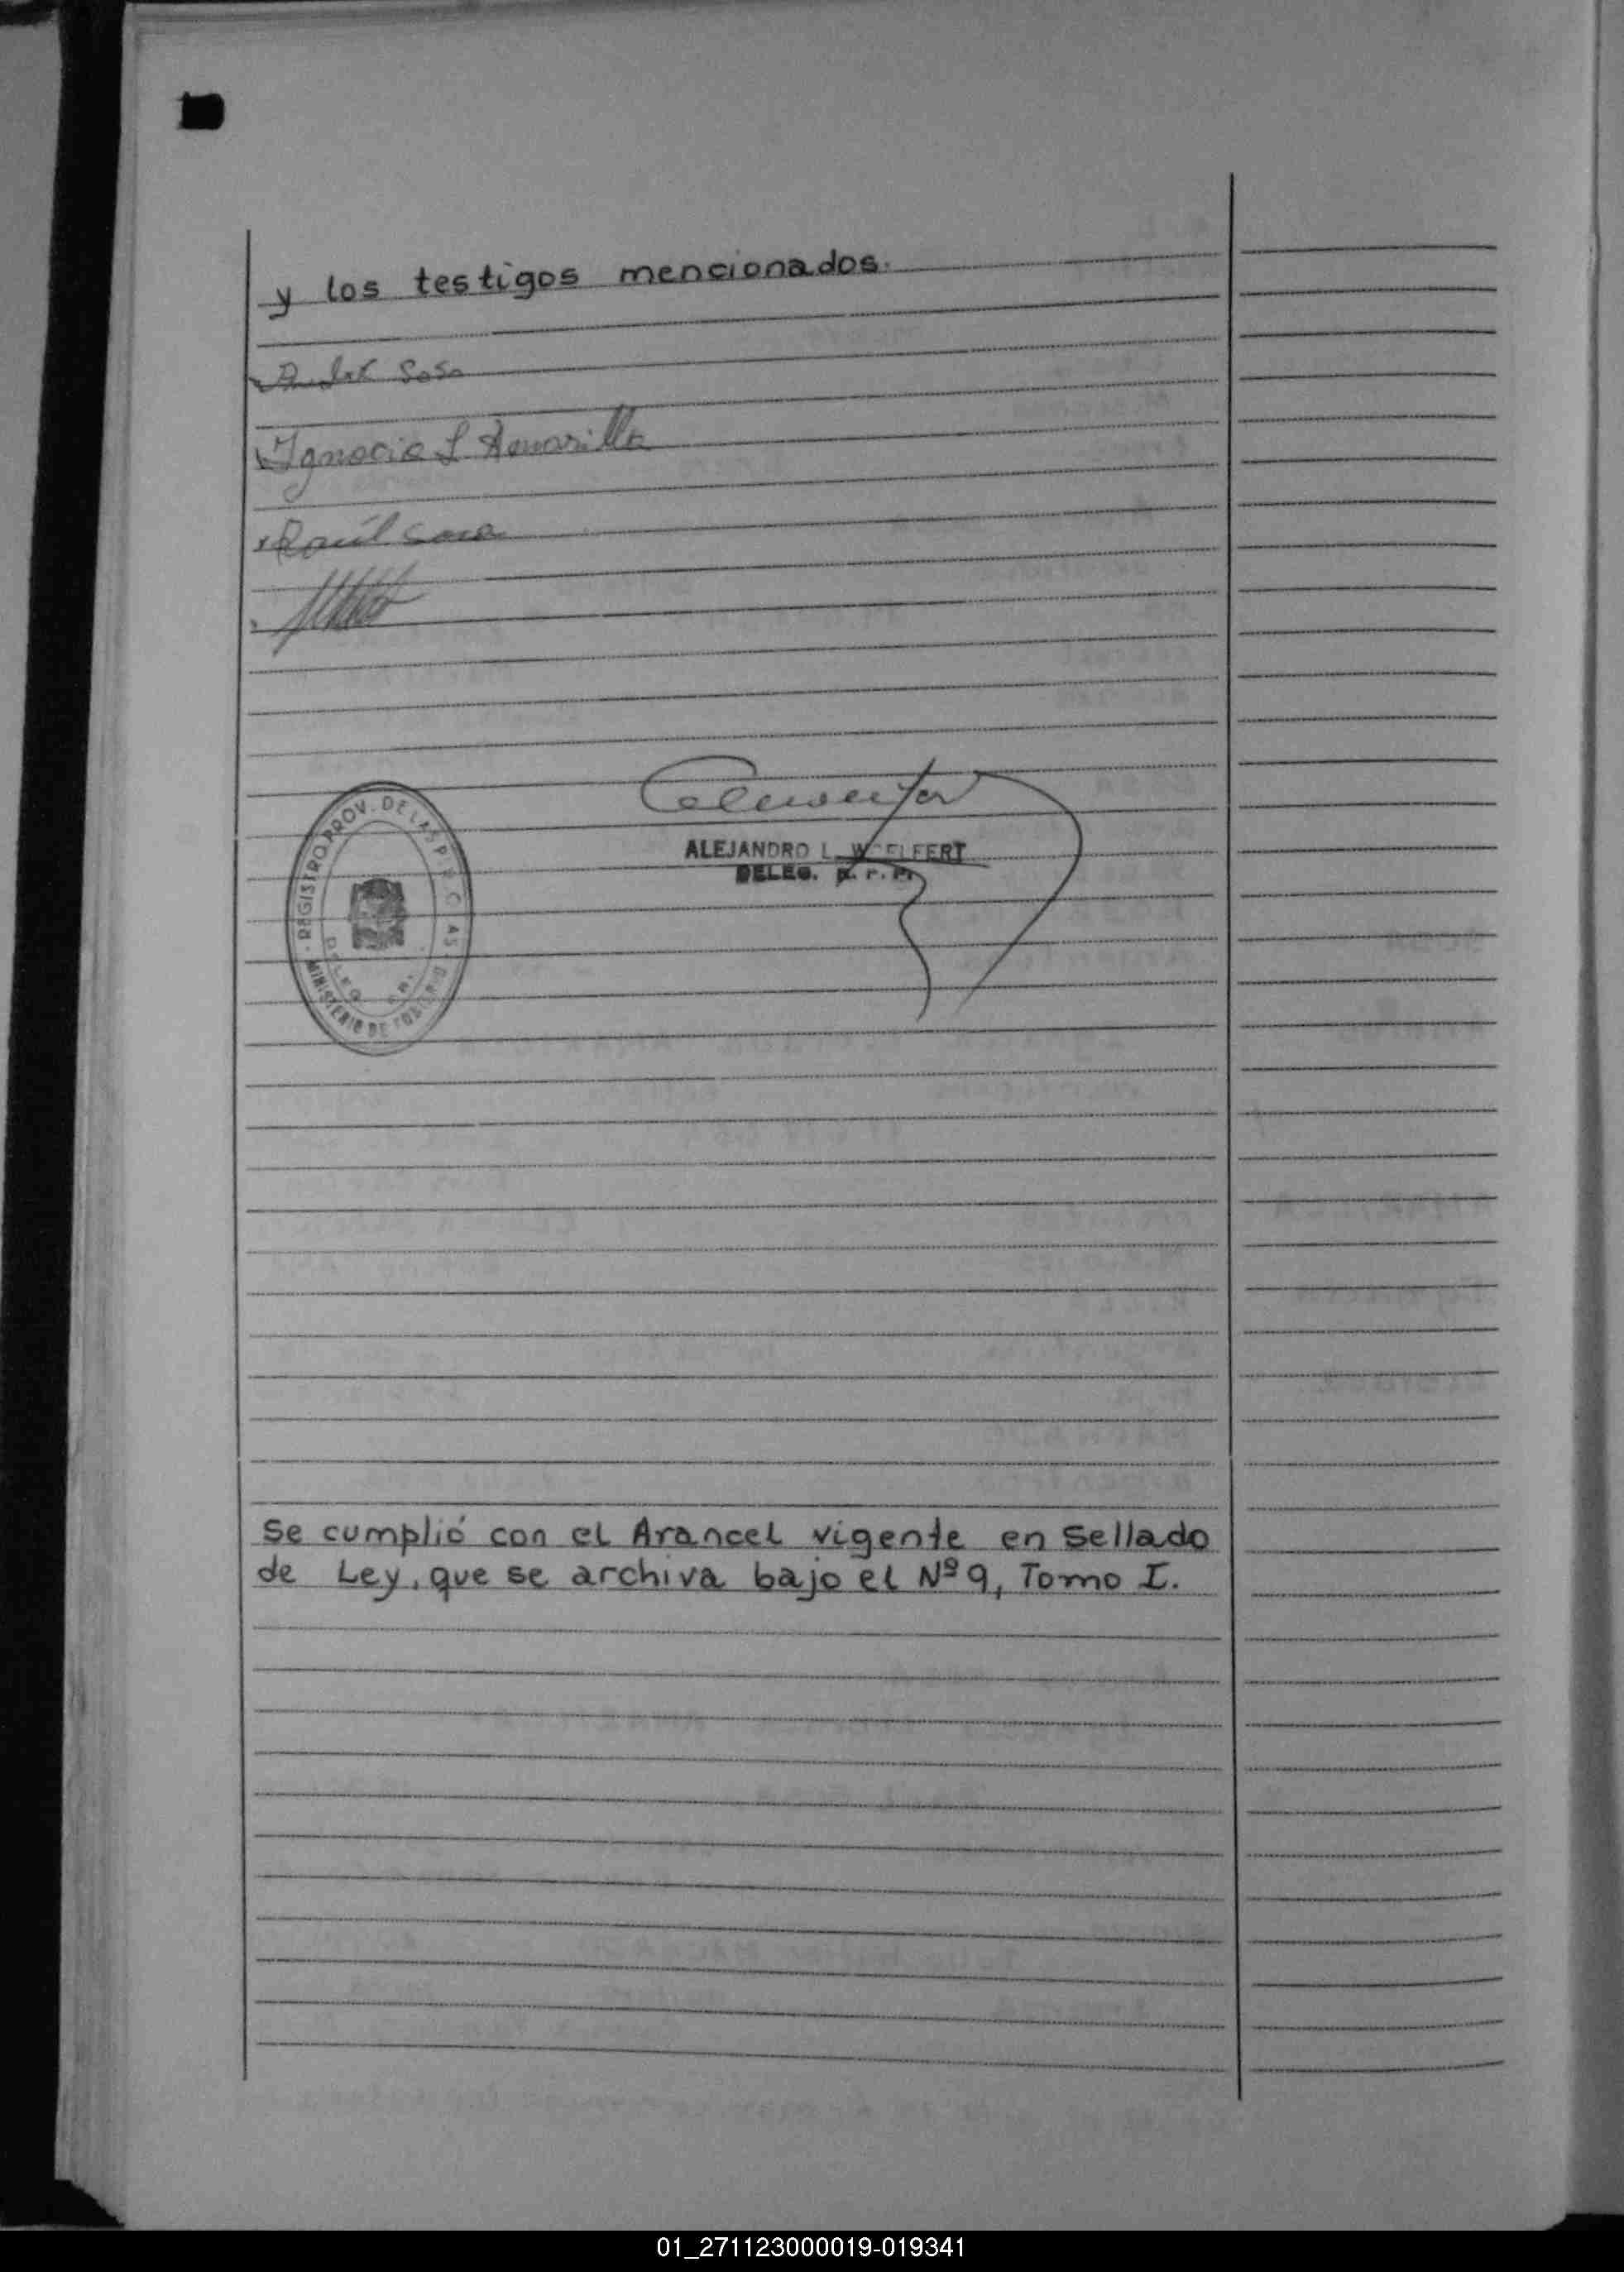 y los testigos mencionados.
Sosa
Ignacio L Amarilla
Raúl Sosa
REGISTRO PROV. DE LAS P
MINISTERIO DE
DELEG
ALEJANDRO L. WOELFERT
DELEG. R. P. P.
Se cumplió con el Arancel vigente en Sellado
de Ley, que se archiva bajo el Nº 9, Tomo I.
01_271123000019-019341